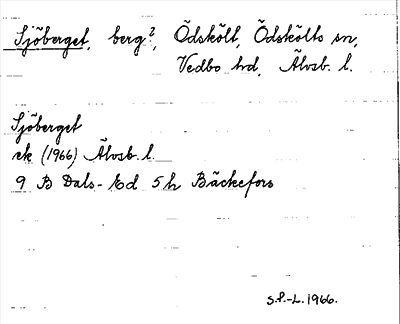 Sjöberget, berg?, Ödskölt, Ödskölts sn,
Vedbo hd, Älvsb. l.
Sjöberget
ek (1966) Älvsb. l.
9 B Dals-Ed 5 h Bäckefors
S.P.-L. 1966.